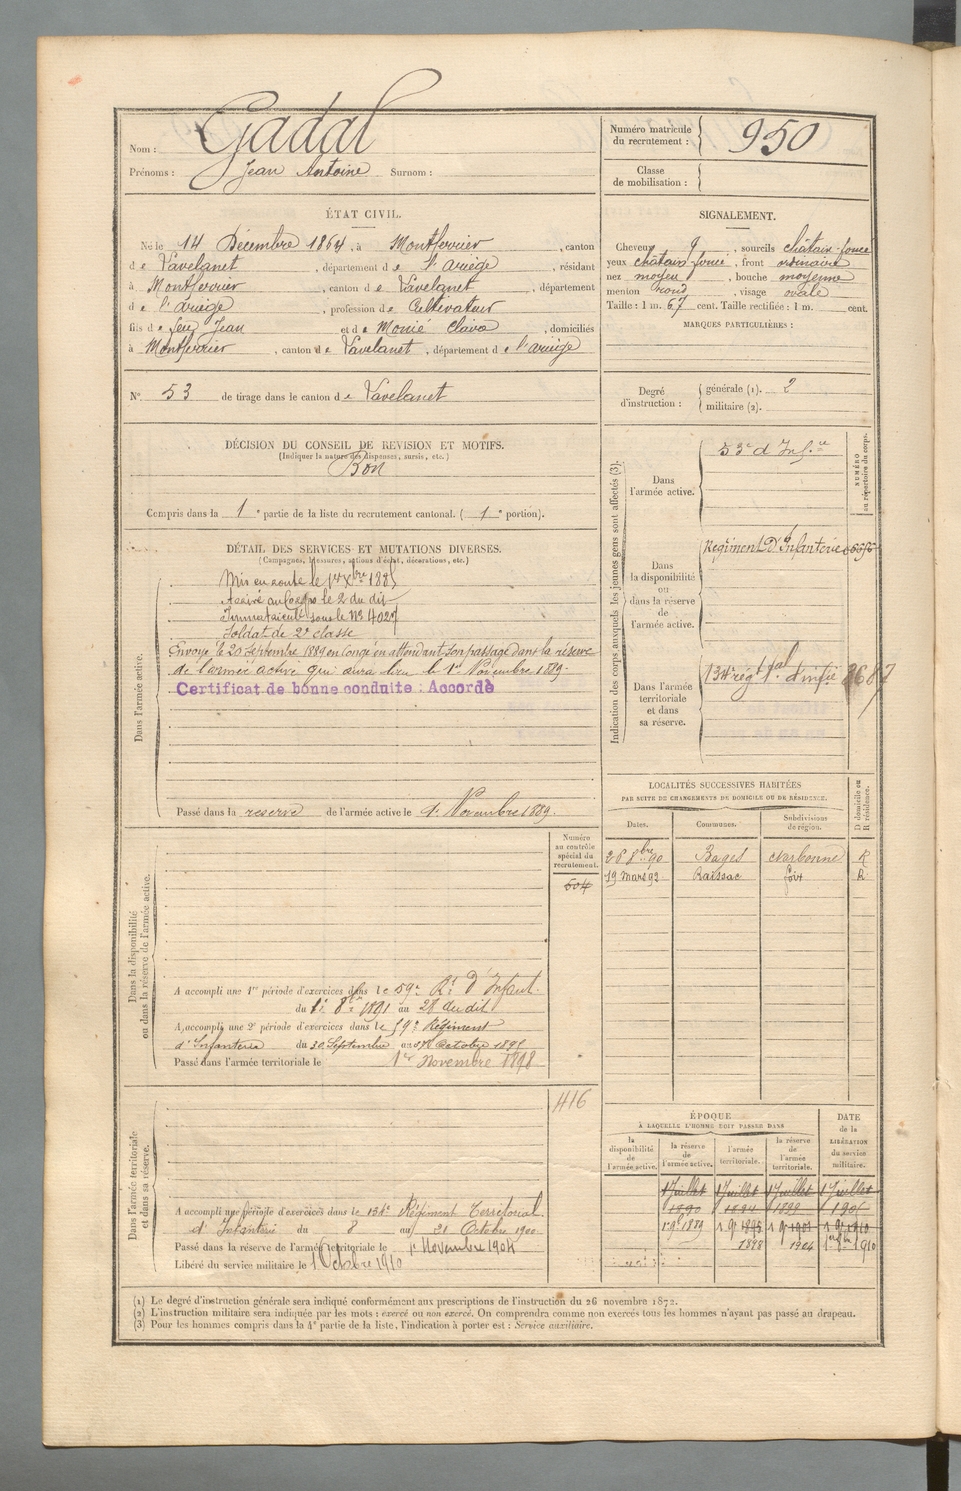 Nom : Gadal
Prénoms : Jean Antoine Surnom :
Numéro matricule du recrutement : 950
Classe de mobilisation :
ÉTAT CIVIL.
Né le 14 Décembre 1864, à Montferrier, canton
de Lavelanet, département de l'Ariège, résidant
à Montferrier, canton de Lavelanet, département
de l'Ariège, profession de Cultivateur
fils de feu Jean et de Monié Claire, domiciliés
à Montferrier, canton de Lavelanet, département de l'Ariège
SIGNALEMENT.
Cheveux, sourcils châtain-foncé
yeux châtain-foncé, front ordinaire
nez moyen, bouche moyenne
menton rond, visage ovale
Taille : 1 m. 67 cent. Taille rectifiée : 1 m. cent.
MARQUES PARTICULIÈRES :
N° 53 de tirage dans le canton de Lavelanet
Degré d'instruction : générale (1). 2
militaire (2).
DÉCISION DU CONSEIL DE REVISION ET MOTIFS.
(Indiquer la nature des dispenses, sursis, etc.)
Bon
Compris dans la 1e partie de la liste du recrutement cantonal. ( 1e portion).
DÉTAIL DES SERVICES ET MUTATIONS DIVERSES.
(Campagnes, blessures, actions d'éclat, décorations, etc.)
Dans l'armée active.
Mis en route le 1er Xbre 1885
Arrivé au Corps le 2 du dit
Immatriculé sous le N°
Soldat de 2e classe
Envoyé le 20 Septembre 1889 en congé en attendant son passage dans la réserve
de l'armée active qui aura lieu le 1er Novembre 1889.
Certificat de bonne conduite : Accordé
Passé dans la reserve de l'armée active le 1er Novembre 1889.
Indication des corps auxquels les jeunes gens sont affectés (3).
NUMÉRO au répertoire du corps.
Dans l'armée active.
53e d'Infie
Dans la disponibilité ou dans la réserve de l'armée active.
Régiment d'Infanterie
Dans l'armée territoriale et dans sa réserve.
134e régt tal d'infie
LOCALITÉS SUCCESSIVES HABITÉES
PAR SUITE DE CHANGEMENTS DE DOMICILE OU DE RÉSIDENCE.
Dates. Communes. Subdivisions de région. D domicile ou R résidence.
26 8bre 90 Bages Narbonne R
19 Mars 92 Raissac Foix R
Dans la disponibilité ou dans la réserve de l'armée active.
Numéro au contrôle spécial du recrutement.
604
A accompli une 1re période d'exercices dans le 59e Rt d'Infant.
du 1er 8bre 1891 au 28 du dit
A accompli une 2e période d'exercices dans le 59e Régiment
d'Infanterie du 30 Septembre au Octobre
Passé dans l'armée territoriale le 1er Novembre 1898
Dans l'armée territoriale et dans sa réserve.
416
A accompli une période d'exercices dans le 134e Régiment Territorial
d'Infanterie du 8 au 21 Octobre 1900
Passé dans la réserve de l'armée territoriale le 1er Novembre 1904
Libéré du service militaire le 1 Octobre 1910
ÉPOQUE
À LAQUELLE L'HOMME DOIT PASSER DANS
DATE de la LIBÉRATION du service militaire.
la disponibilité de l'armée active. la réserve de l'armée active. l'armée territoriale. la réserve de l'armée territoriale.
1 Juillet 1 Juillet 1 Juillet 1 Juillet
1890 1894 1899 1905
1898 1904
(1) Le degré d'instruction générale sera indiqué conformément aux prescriptions de l'instruction du 26 novembre 1872.
(2) L'instruction militaire sera indiquée par les mots : exercé ou non exercé. On comprendra comme non exercés tous les hommes n'ayant pas passé au drapeau.
(3) Pour les hommes compris dans la 4e partie de la liste, l'indication à porter est : Service auxiliaire.